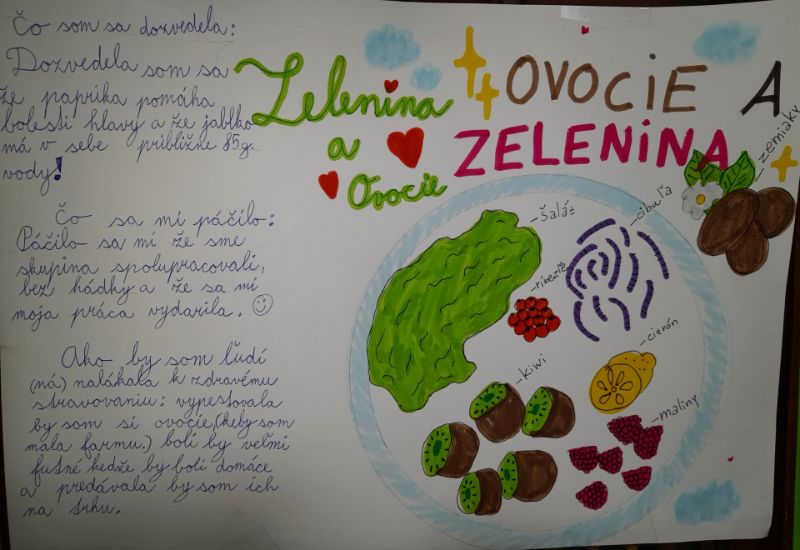 Čo som sa dozvedela:
Dozvedela som sa
že paprika pomáha
bolesti hlavy a že jablko
má v sebe približne 85g
vody!
Čo sa mi páčilo:
Páčilo sa mi že sme
skupina spolupracovali,
bez hádky a že sa mi
moja práca vydarila.
Ako by som ľudí
(ná) nalákala k zdravému
stravovaniu: vypestovala
by som si ovocie, (keby som
mala farmu.) boli by veľmi
futné kedže by boli domáce
a predávala by som ich
na trhu.
Zelenina
a
Ovocie
OVOCIE A
ZELENINA
-zemiaky
-šalát
-cibuľa
-ríbezle
-citrón
-kiwi
-maliny